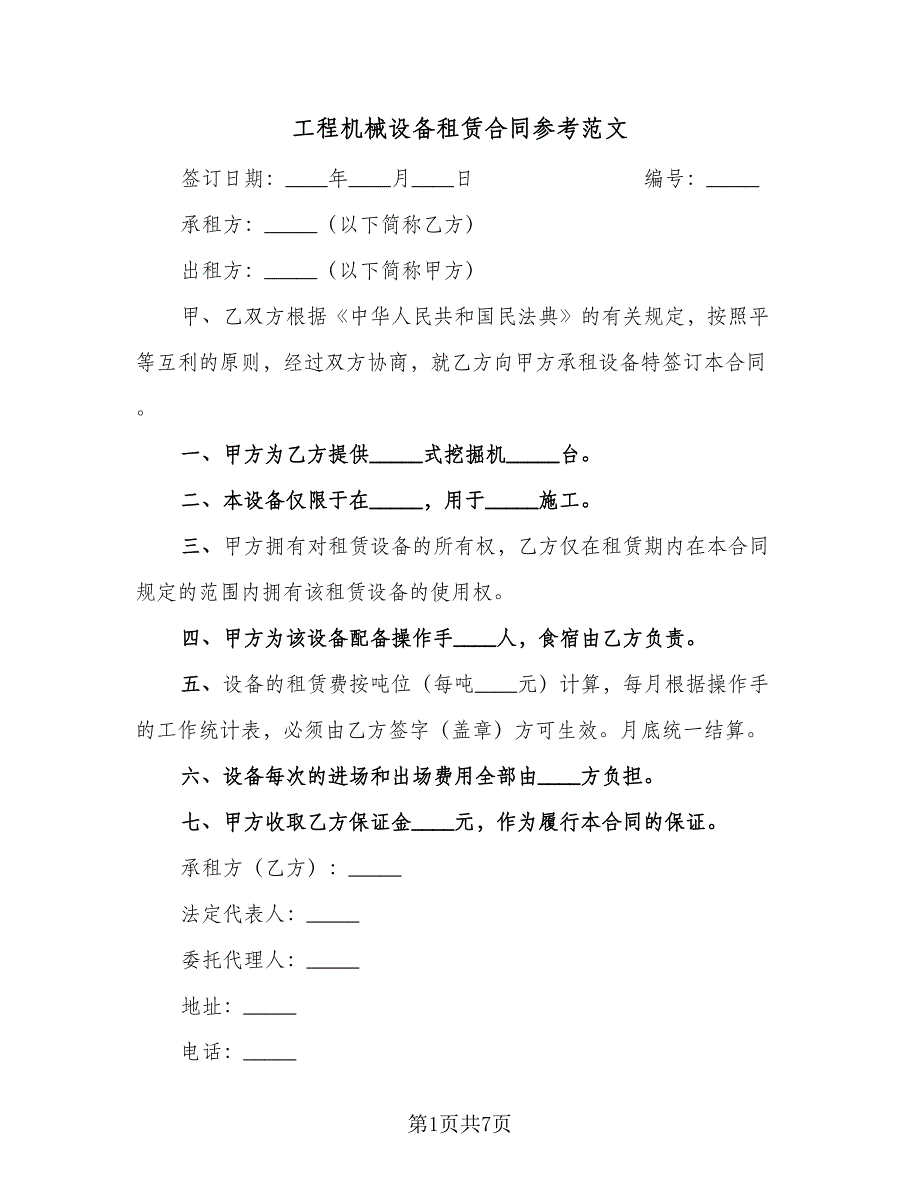 工程机械设备租赁合同参考范文
签订日期：____年____月____日 编号：_____
承租方：_____（以下简称乙方）
出租方：_____（以下简称甲方）
甲、乙双方根据《中华人民共和国民法典》的有关规定，按照平
等互利的原则，经过双方协商，就乙方向甲方承租设备特签订本合同
。
一、甲方为乙方提供_____式挖掘机_____台。
二、本设备仅限于在_____，用于_____施工。
三、甲方拥有对租赁设备的所有权，乙方仅在租赁期内在本合同
规定的范围内拥有该租赁设备的使用权。
四、甲方为该设备配备操作手____人，食宿由乙方负责。
五、设备的租赁费按吨位（每吨____元）计算，每月根据操作手
的工作统计表，必须由乙方签字（盖章）方可生效。月底统一结算。
六、设备每次的进场和出场费用全部由____方负担。
七、甲方收取乙方保证金____元，作为履行本合同的保证。
承租方（乙方）：_____
法定代表人：_____
委托代理人：_____
地址：_____
电话：_____
第1页共7页